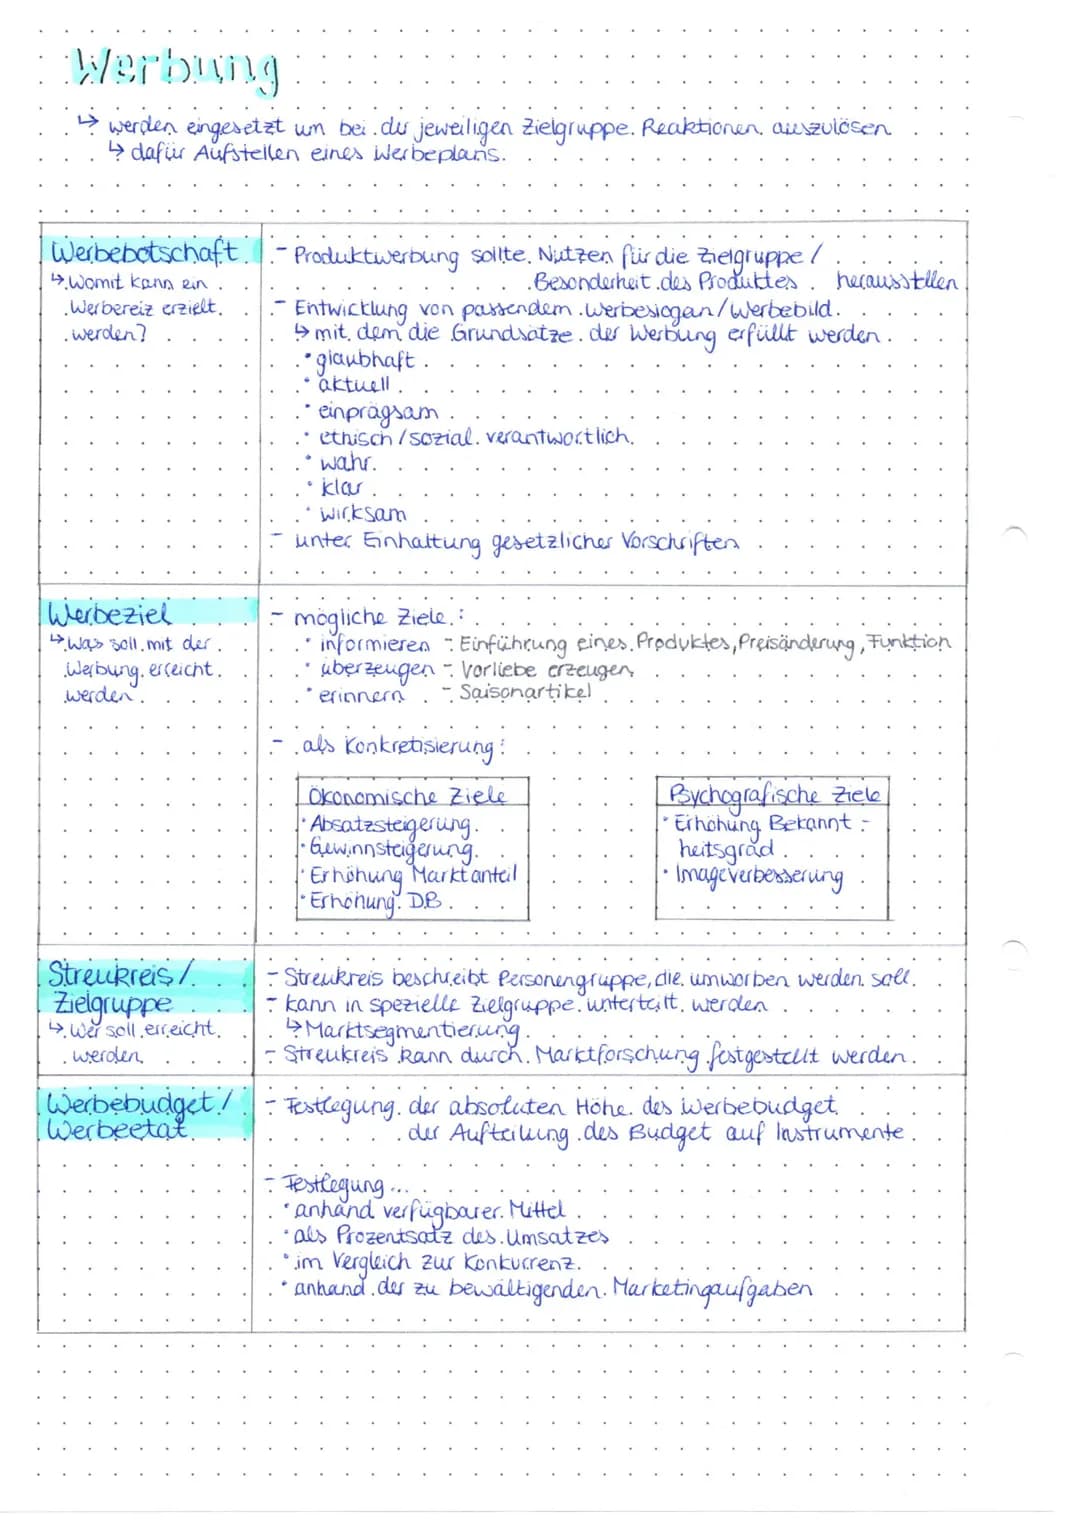 Werbung
↳ werden eingesetzt um bei der jeweiligen Zielgruppe Reaktionen auszulösen
↳ dafür Aufstellen eines Werbeplans.
Werbebotschaft
↳ Womit kann ein
Werbereiz erzielt
werden?
- Produktwerbung sollte Nutzen für die Zielgruppe /
Besonderheit des Produktes herausstellen
- Entwicklung von passendem Werbeslogan/Werbebild
↳ mit dem die Grundsätze der Werbung erfüllt werden
• glaubhaft
• aktuell
• einprägsam
• ethisch/sozial verantwortlich
• wahr
• klar
• wirksam
- unter Einhaltung gesetzlicher Vorschriften
Werbeziel
↳ Was soll mit der
Werbung erreicht
werden
- mögliche Ziele:
• informieren - Einführung eines Produktes, Preisänderung, Funktion
• überzeugen - Vorliebe erzeugen
• erinnern - Saisonartikel
- als Konkretisierung:
Ökonomische Ziele
• Absatzsteigerung
• Gewinnsteigerung
• Erhöhung Marktanteil
• Erhöhung DB
Psychografische Ziele
• Erhöhung Bekannt-
heitsgrad
• Imageverbesserung
Streukreis/
Zielgruppe
↳ Wer soll erreicht
werden
- Streukreis beschreibt Personengruppe, die umworben werden soll
- kann in spezielle Zielgruppe unterteilt werden
↳ Marktsegmentierung
- Streukreis kann durch Marktforschung festgestellt werden
Werbebudget/
Werbeetat
- Festlegung der absoluten Höhe des Werbebudget
der Aufteilung des Budget auf Instrumente
- Festlegung...
• anhand verfügbarer Mittel
• als Prozentsatz des Umsatzes
• im Vergleich zur Konkurrenz
• anhand der zu bewältigenden Marketingaufgaben